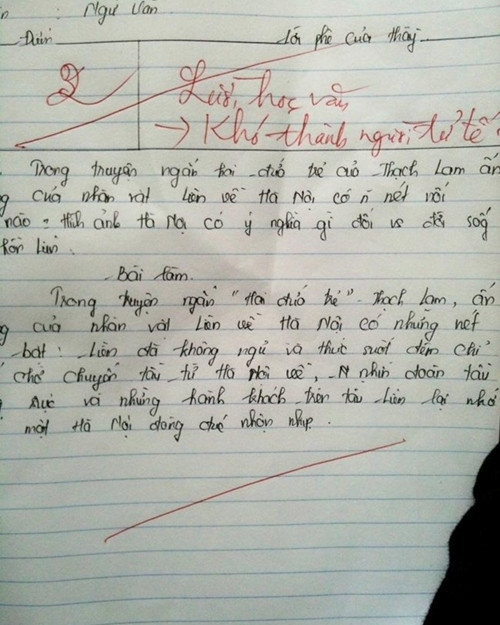 Ngữ Văn
Điểm Lời phê của thầy
2 Lười học văn
→ Khó thành người tử tế
Trong truyện ngắn hai đứa trẻ của Thạch Lam ấn
g của nhân vật Liên về Hà Nội có n nét nổi
nào. Hình ảnh Hà Nội có ý nghĩa gì đối vs đời sống
hồn Liên.
Bài làm.
Trong truyện ngắn "Hai đứa trẻ". Thạch Lam, ấn
g của nhân vật Liên về Hà Nội có những nét
bật: Liên đã không ngủ và thức suốt đêm chỉ
chờ chuyến tàu từ Hà Nội về, nhìn đoàn tàu
rực và những hành khách trên tàu Liên lại nhớ
một Hà Nội đông đúc nhộn nhịp.